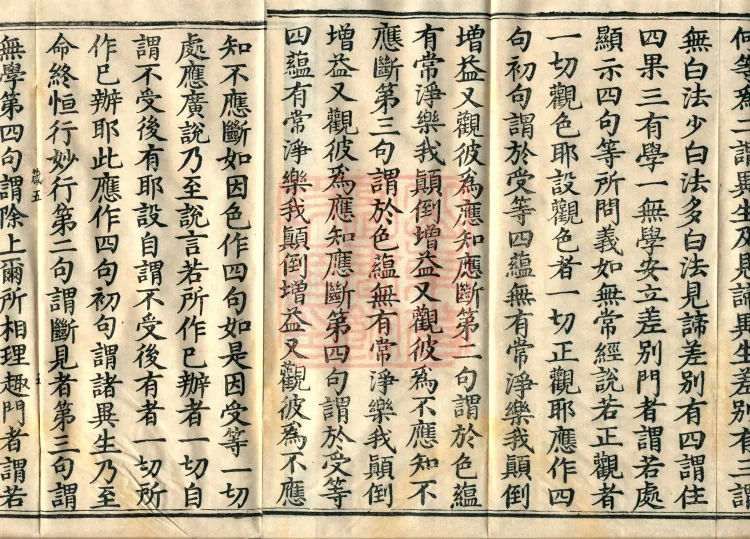 何等為二謂異生及見諦異生差別有三謂
無白法少白法多白法見諦差別有四謂住
四果三有學一無學安立差別門者謂若處
顯示四句等所問義如無常經說若正觀者
一切觀色耶設觀色者一切正觀耶應作四
句初句謂於受等四蘊無有常淨樂我顛倒
增益又觀彼為應知應斷第二句謂於色蘊
有常淨樂我顛倒增益又觀彼為不應知不
應斷第三句謂於色蘊無有常淨樂我顛倒
增益又觀彼為應知應斷第四句謂於受等
四蘊有常淨樂我顛倒增益又觀彼為不應
知不應斷如因色作四句如是因受等一切
處應廣說乃至說言若所作已辦者一切自
謂不受後有耶設自謂不受後有者一切所
作已辦耶此應作四句初句謂諸異生乃至
命終恒行妙行第二句謂斷見者第三句謂
無學第四句謂除上爾所相理趣門者謂若